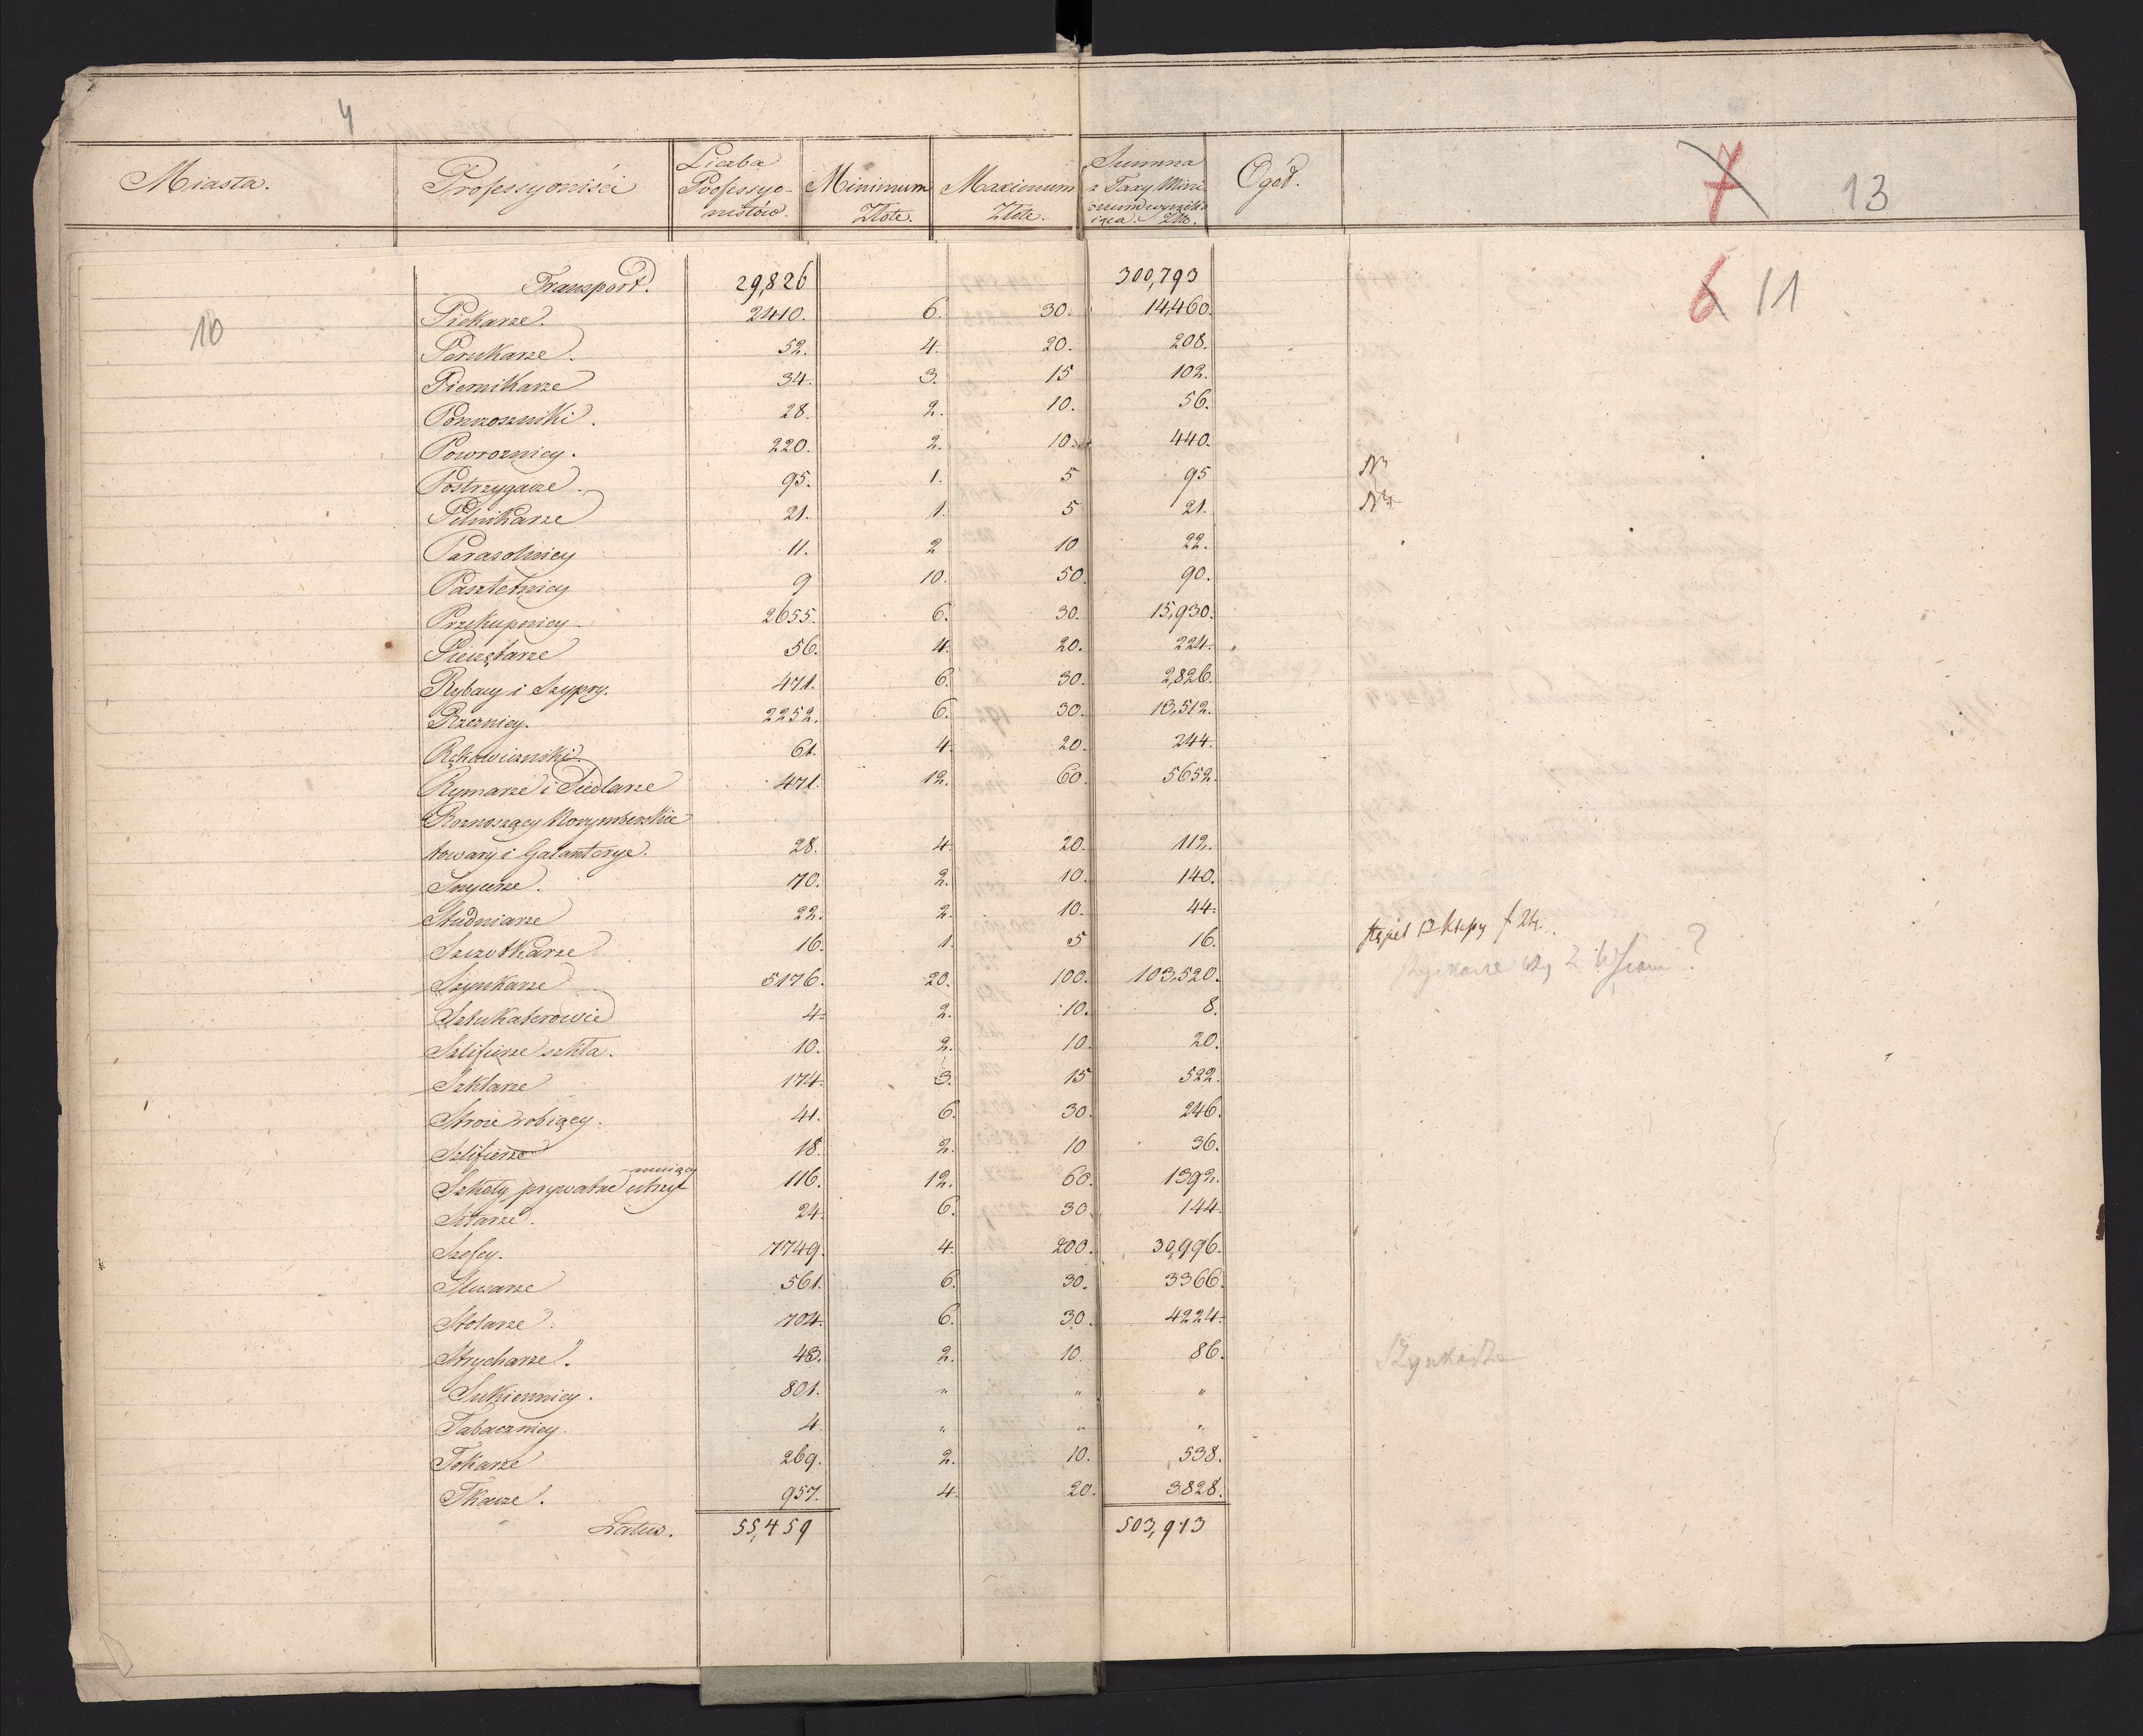 4
Miasta. Professyoniści Liczba Professyo- nistów. Minimum Złote. Maximum Złote. Summa z Taxy Mini mum wynika iąca. Złte. Ogół.
7 13
Transport. 29,826 300,793
6 11
10
Piekarze. 2410. 6. 30. 14,460.
Perukarze. 52. 4. 20. 208.
Piernikarze 34. 3. 15 102.
Ponczoszniki. 28. 2. 10. 56.
Powroznicy. 220. 2. 10. 440.
Postrzygacze. 95. 1. 5 95
Pilnikarze 21. 1. 5 21.
Parasolnicy 11. 2 10 22.
Pasztetnicy 9 10. 50. 90.
Przekupnicy 2655. 6. 30. 15,930.
Pieczętarze 56. 4. 20. 224.
Rybacy i Szypry. 471. 6. 30. 2,826.
Rzeznicy. 2252. 6. 30. 13,512.
Rękawiczniki. 61. 4. 20. 244.
Rymarze i Siedlarze 471. 12. 60. 5652.
Roznoszący Norymberskie
towary i Galanterye. 28. 4. 20. 112.
Snycerze. 70. 2. 10. 140.
Studniarze 22. 2. 10. 44.
Szczotkarze 16. 1. 5 16.
Szynkarze 5176. 20. 100. 103,520.
Sztukaterowie 4. 2. 10. 8.
Szlifierze szkła. 10. 2. 10. 20.
Szklarze 174. 3. 15 522.
Stroie robiący. 41. 6. 30. 246.
Szlifierze 18. 2. 10 36.
Szkoły prywatne utrzy- muiący 116. 12. 60. 1392.
24. 6. 30. 144.
Szefcy. 7749. 4. 200. 30,996.
Slusarze 561. 6. 30. 3366.
Stolarze. 704. 6. 30. 4224.
Strycharze. 43. 2. 10. 86.
Sukiennicy. 801. " " "
Tabacznicy. 4. " " "
Tokarze 269. 2. 10. 538.
Tkacze. 957. 4. 20. 3828.
Latus. 55,459 503,913
Szynkarze